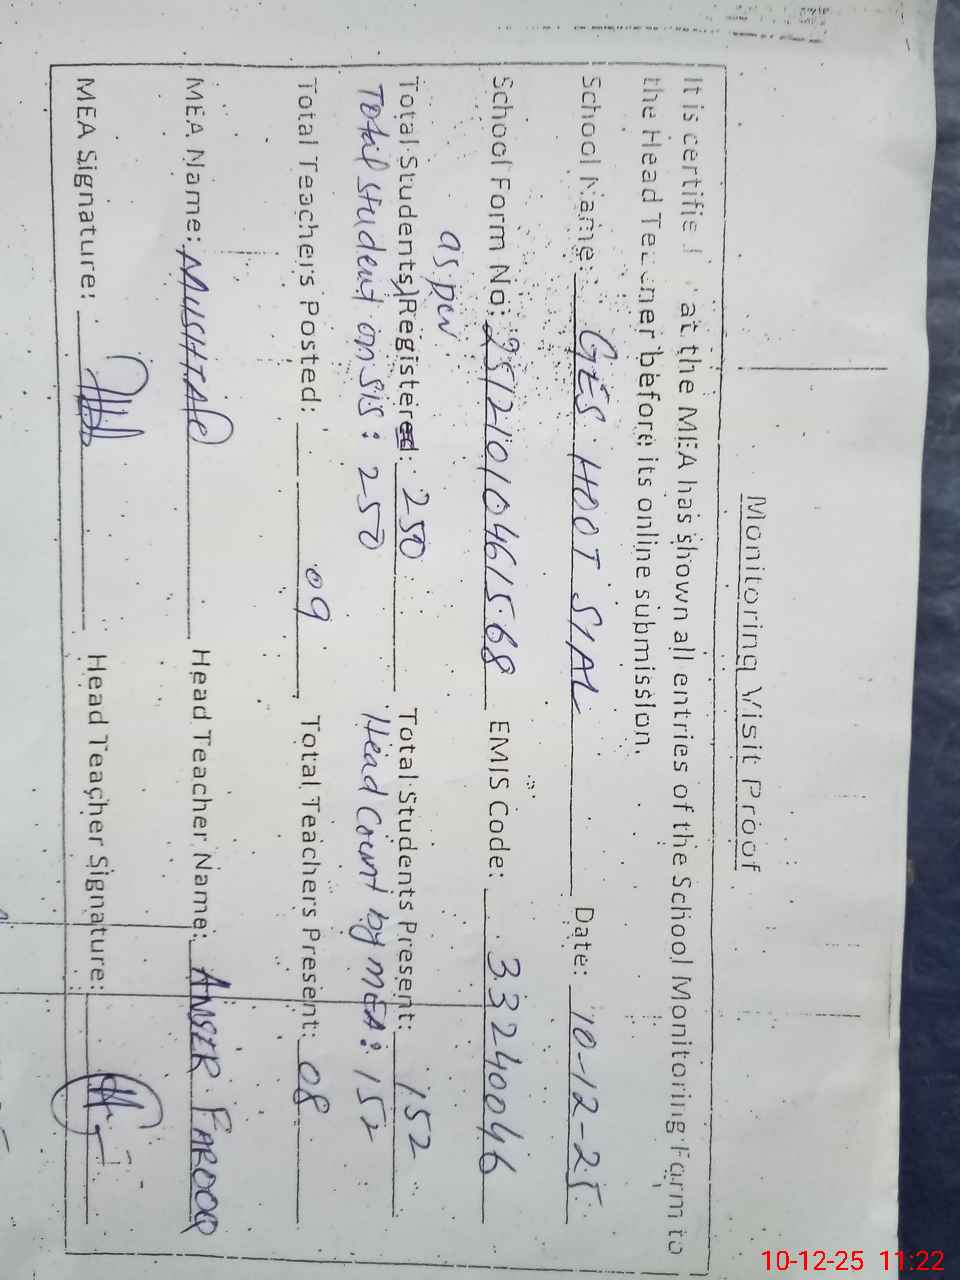 Monitoring Visit Proof
It is certified at the MEA has shown all entries of the School Monitoring Farm to
the Head Teacher before its online submission.
School Name: GES HOOT SIAL Date: 10-12-25
School Form No: 25121010461568 EMIS Code: 33240046
as per
Total Students Registered: 250 Total Students Present: 152
Total student on SIS: 250 Head Count by MEA: 152
Total Teachers Posted: 09 Total Teachers Present: 08
MEA Name: MUSHTAQ Head Teacher Name: ANSER FAROOQ
MEA Signature: Head Teacher Signature:
10-12-25 11:22